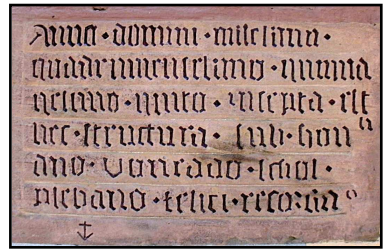 Anno · domini · milesimo ·
quadringentesimo · quinqua
gesimo · quito · incepta · est
hec · structura · sub · hon
ano · Conrado · schol ·
plebano · felici · recordia